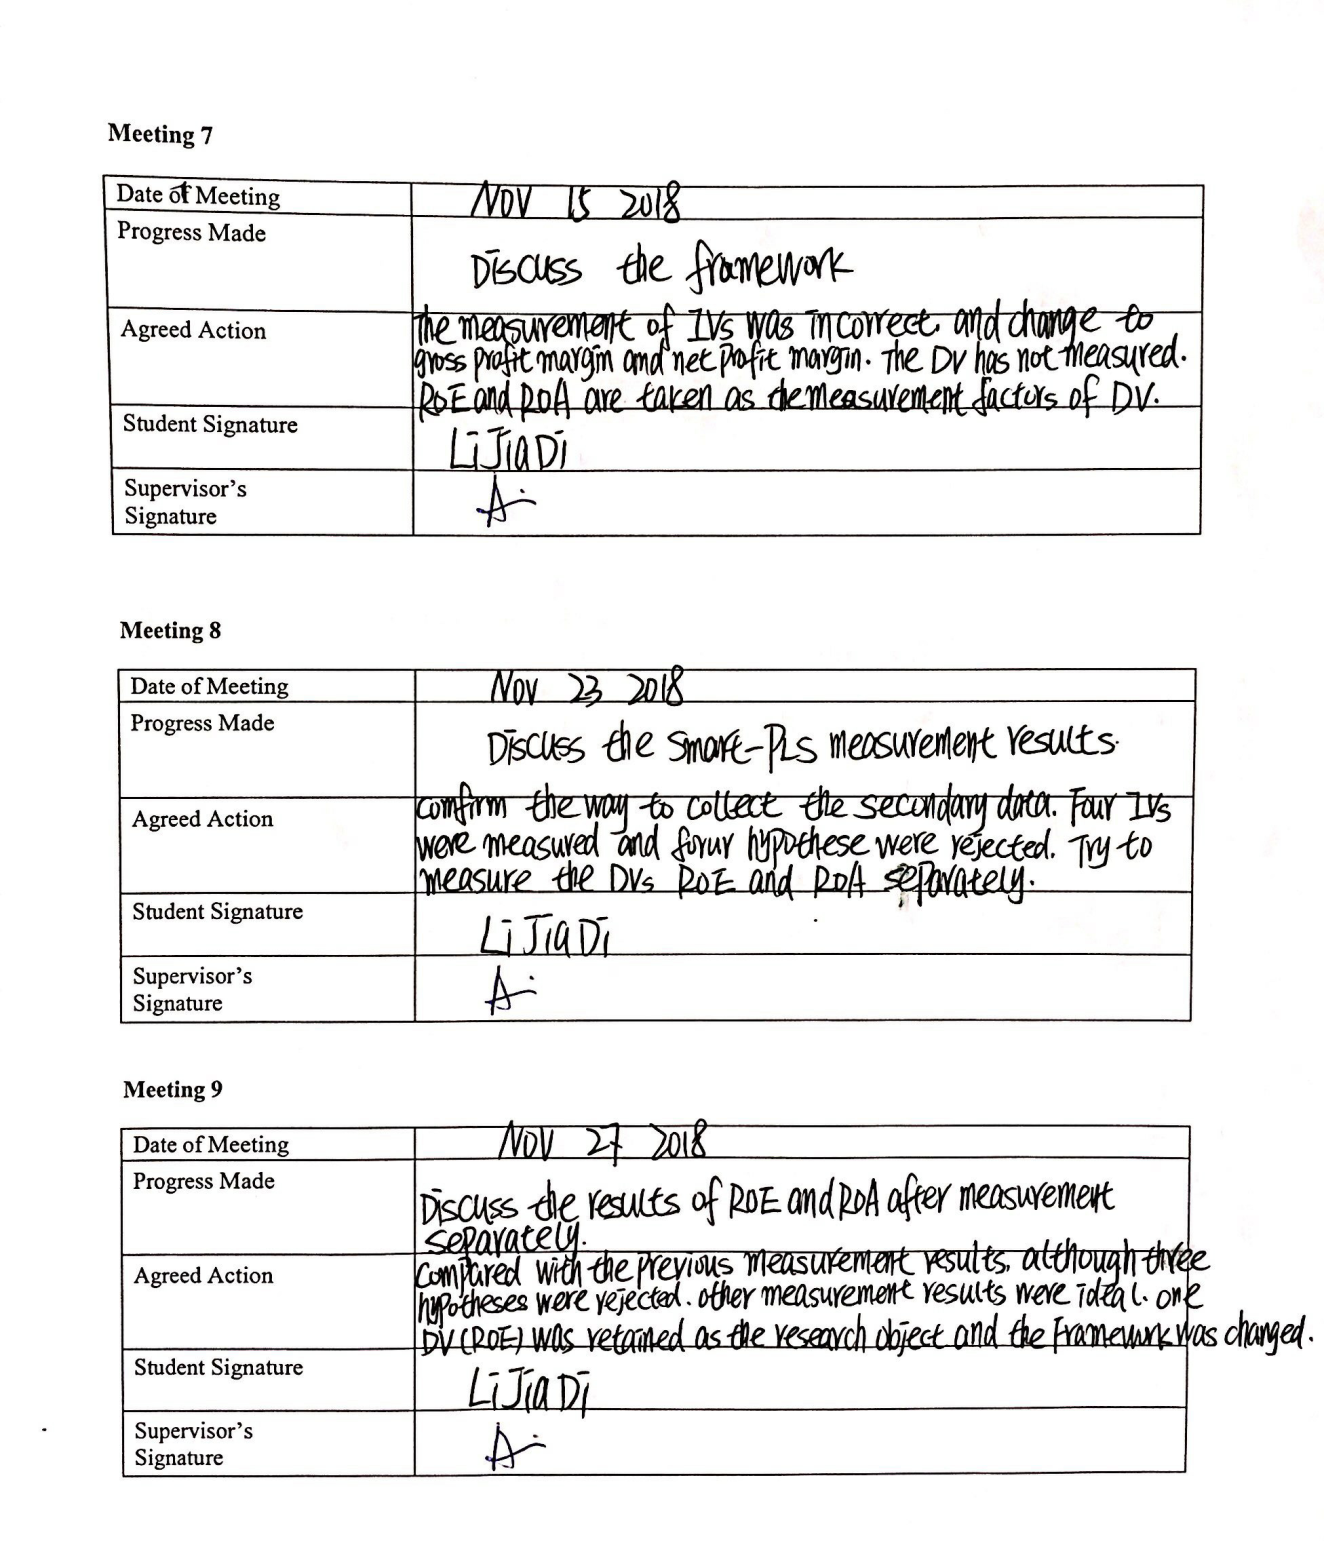 Meeting 7
Date of Meeting NOV 15 2018
Progress Made
Discuss the framework
Agreed Action
The measurement of IVs was incorrect, and change to
gross profit margin and net profit margin. The DV has not measured.
ROE and ROA are taken as the measurement factors of DV.
Student Signature
Li JiaDi
Supervisor's
Signature
Meeting 8
Date of Meeting Nov 23 2018
Progress Made
Discuss the Smart-PLS measurement results.
Agreed Action
comfirm the way to collect the secondary data. Four IVs
were measured and forur hypothese were rejected. Try to
measure the DVs ROE and ROA separately.
Student Signature
Li JiaDi
Supervisor's
Signature
Meeting 9
Date of Meeting NOV 27 2018
Progress Made
Discuss the results of ROE and ROA after measurement
separately.
Agreed Action
Compared with the previous measurement results, although three
hypotheses were rejected. other measurement results were ideal. one
DV (ROE) was retained as the research object and the Framework was changed.
Student Signature
Li JiaDi
Supervisor's
Signature